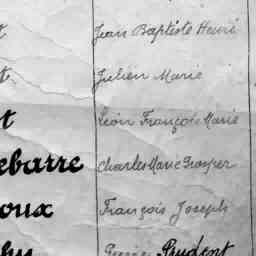 t Jean Baptiste Henri
t Julien Marie
t Léon François Marie
ebarre Charles Marie Prosper
oux François Joseph
hy Pierre Prudent